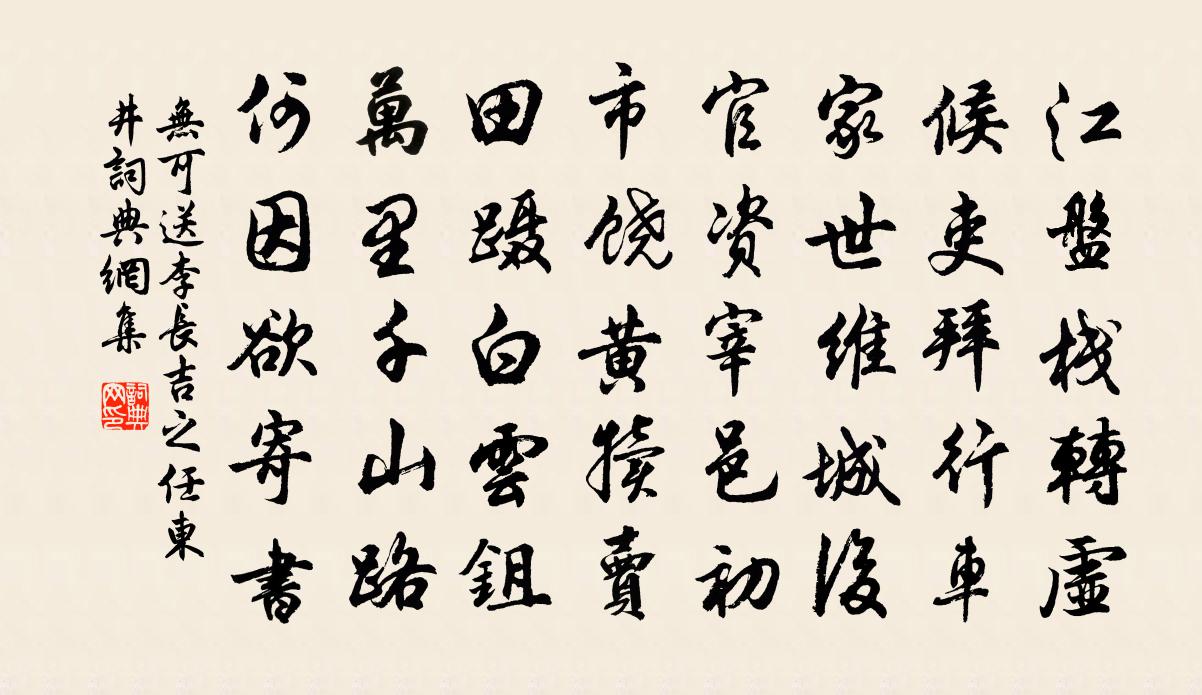 江盤棧轉虛
候吏拜行車
家世維城後
官資宰邑初
市饶黃犢賣
田蹑白雲鉏
萬里千山路
何因欲寄書
無可送李長吉之任東
井詞典網集
詞典網印